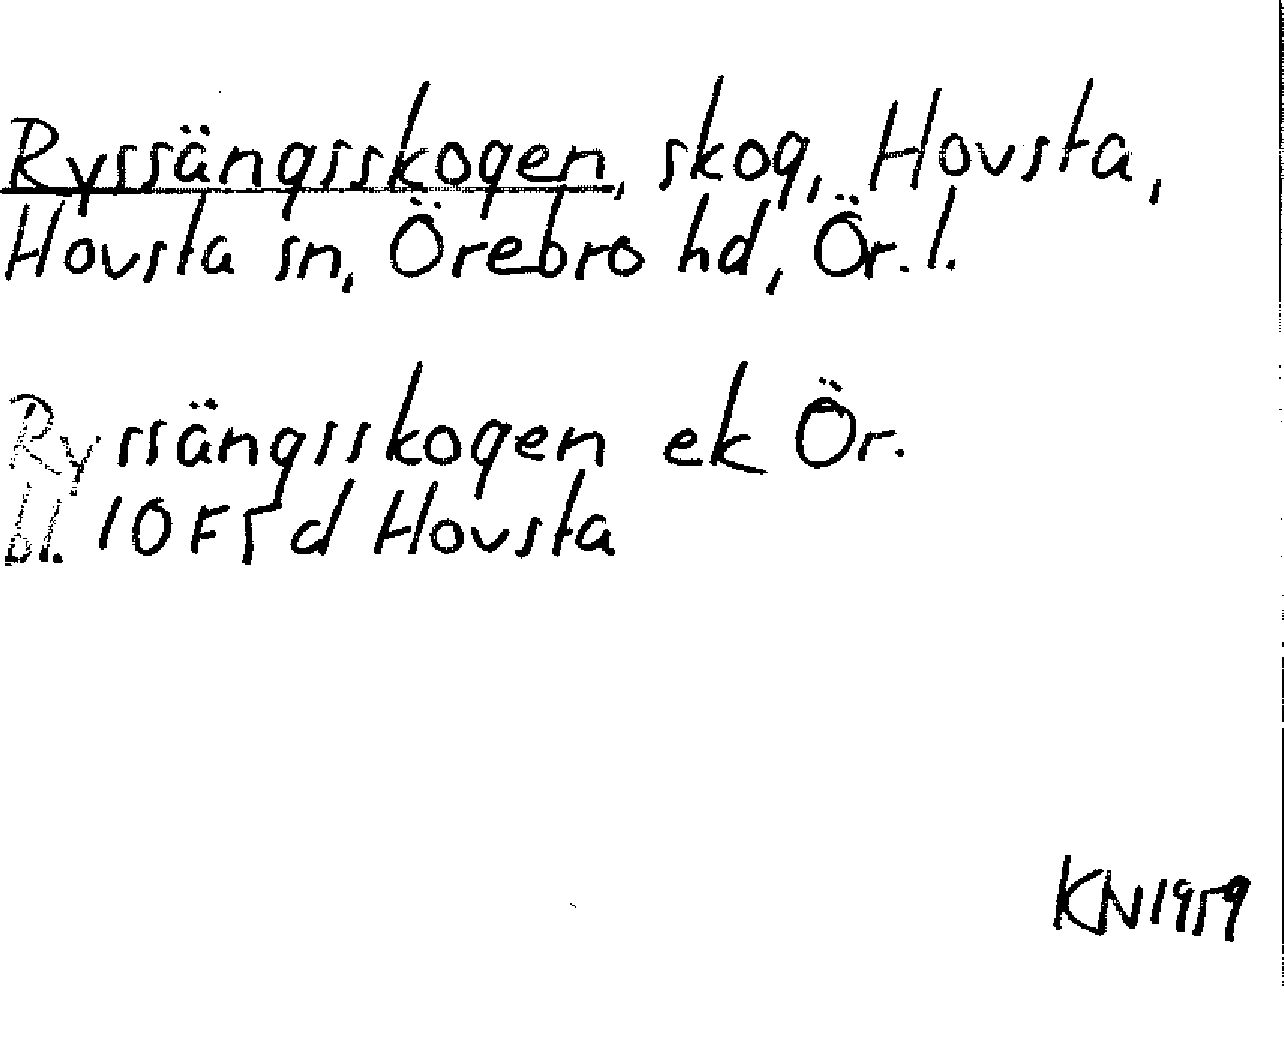 Ryssängsskogen, skog, Hovsta,
Hovsta sn, Örebro hd, Ör. l.
Ryssängsskogen ek Ör.
bl. 10 F 5 d Hovsta
KN 1959